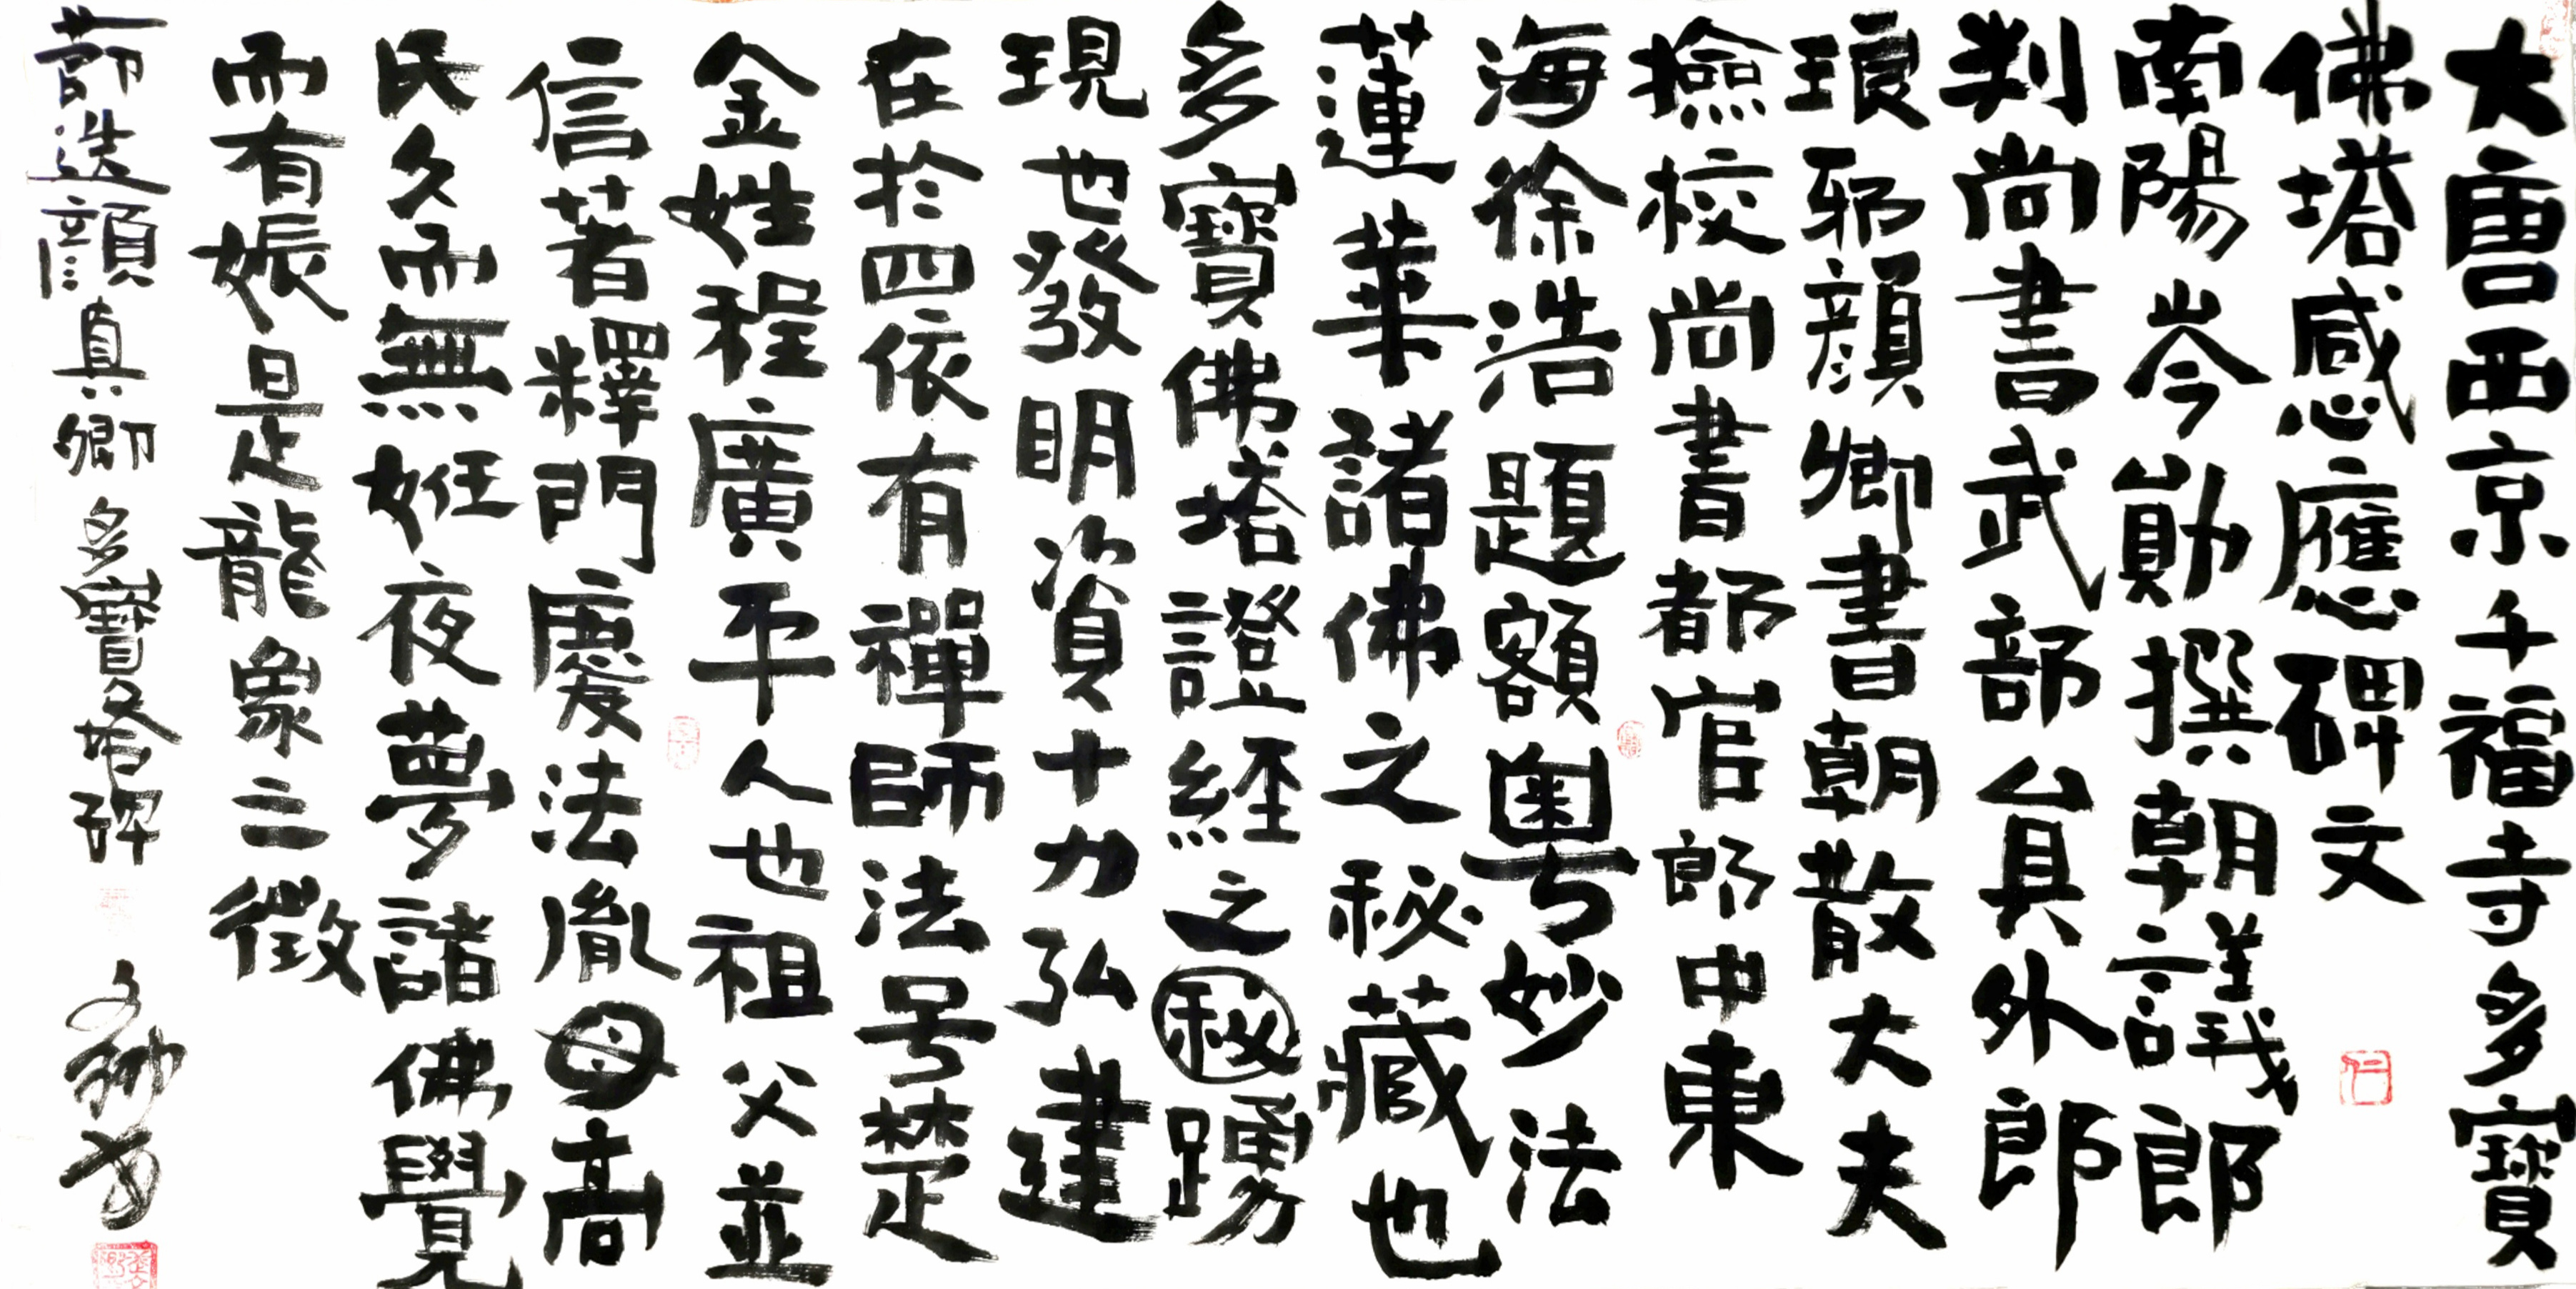 大唐西京千福寺多寶
佛塔感應碑文
南陽岑勛撰朝議郎
判尚書武部貟外郎
琅邪顏卿書朝散大夫
撿校尚書都官郎中東
海徐浩題額粵妙法
蓮華諸佛之秘藏也
多寶佛塔證経之秘踴
現也發明資十力弘建
在於四依有禪師法号楚
金姓程廣平人也祖父並
信著釋門慶法胤母高
氏久而無妊夜夢諸佛覺
而有娠是龍象之徵
節迻顏真卿多寶塔碑